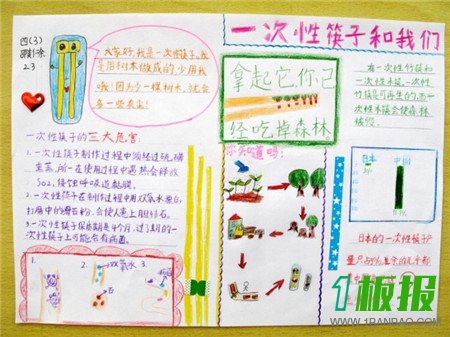 一次性筷子和我们
四(3)
23
大家好,我是一次性筷子,我
是用树木做成的,少用我
哦!因为少一棵树木,就会
多一些来尘!
拿起它你已
经吃掉森林
有一次性竹筷和
一次性木筷,一次性
竹筷是可再生的,而一
次性木筷会使森林
被毁
一次性筷子的三大危害:
1、一次性筷子制作过程中须经过硫磺
熏蒸,所一在使用过程中遇热会释放
SO2,侵蚀呼吸道黏膜。
2、一次性筷子在制作过程中用双氧水漂白,
打磨中的滑石粉,会使人患上胆结石。
3、一次性筷子保质期是4个月,过了期的一
次性筷子上可能会有病菌。
你知道吗:
日本
中国
1.
2.
双氧水
3.
日本的一次性筷子产
1板报
WWW.1BANBAO.COM